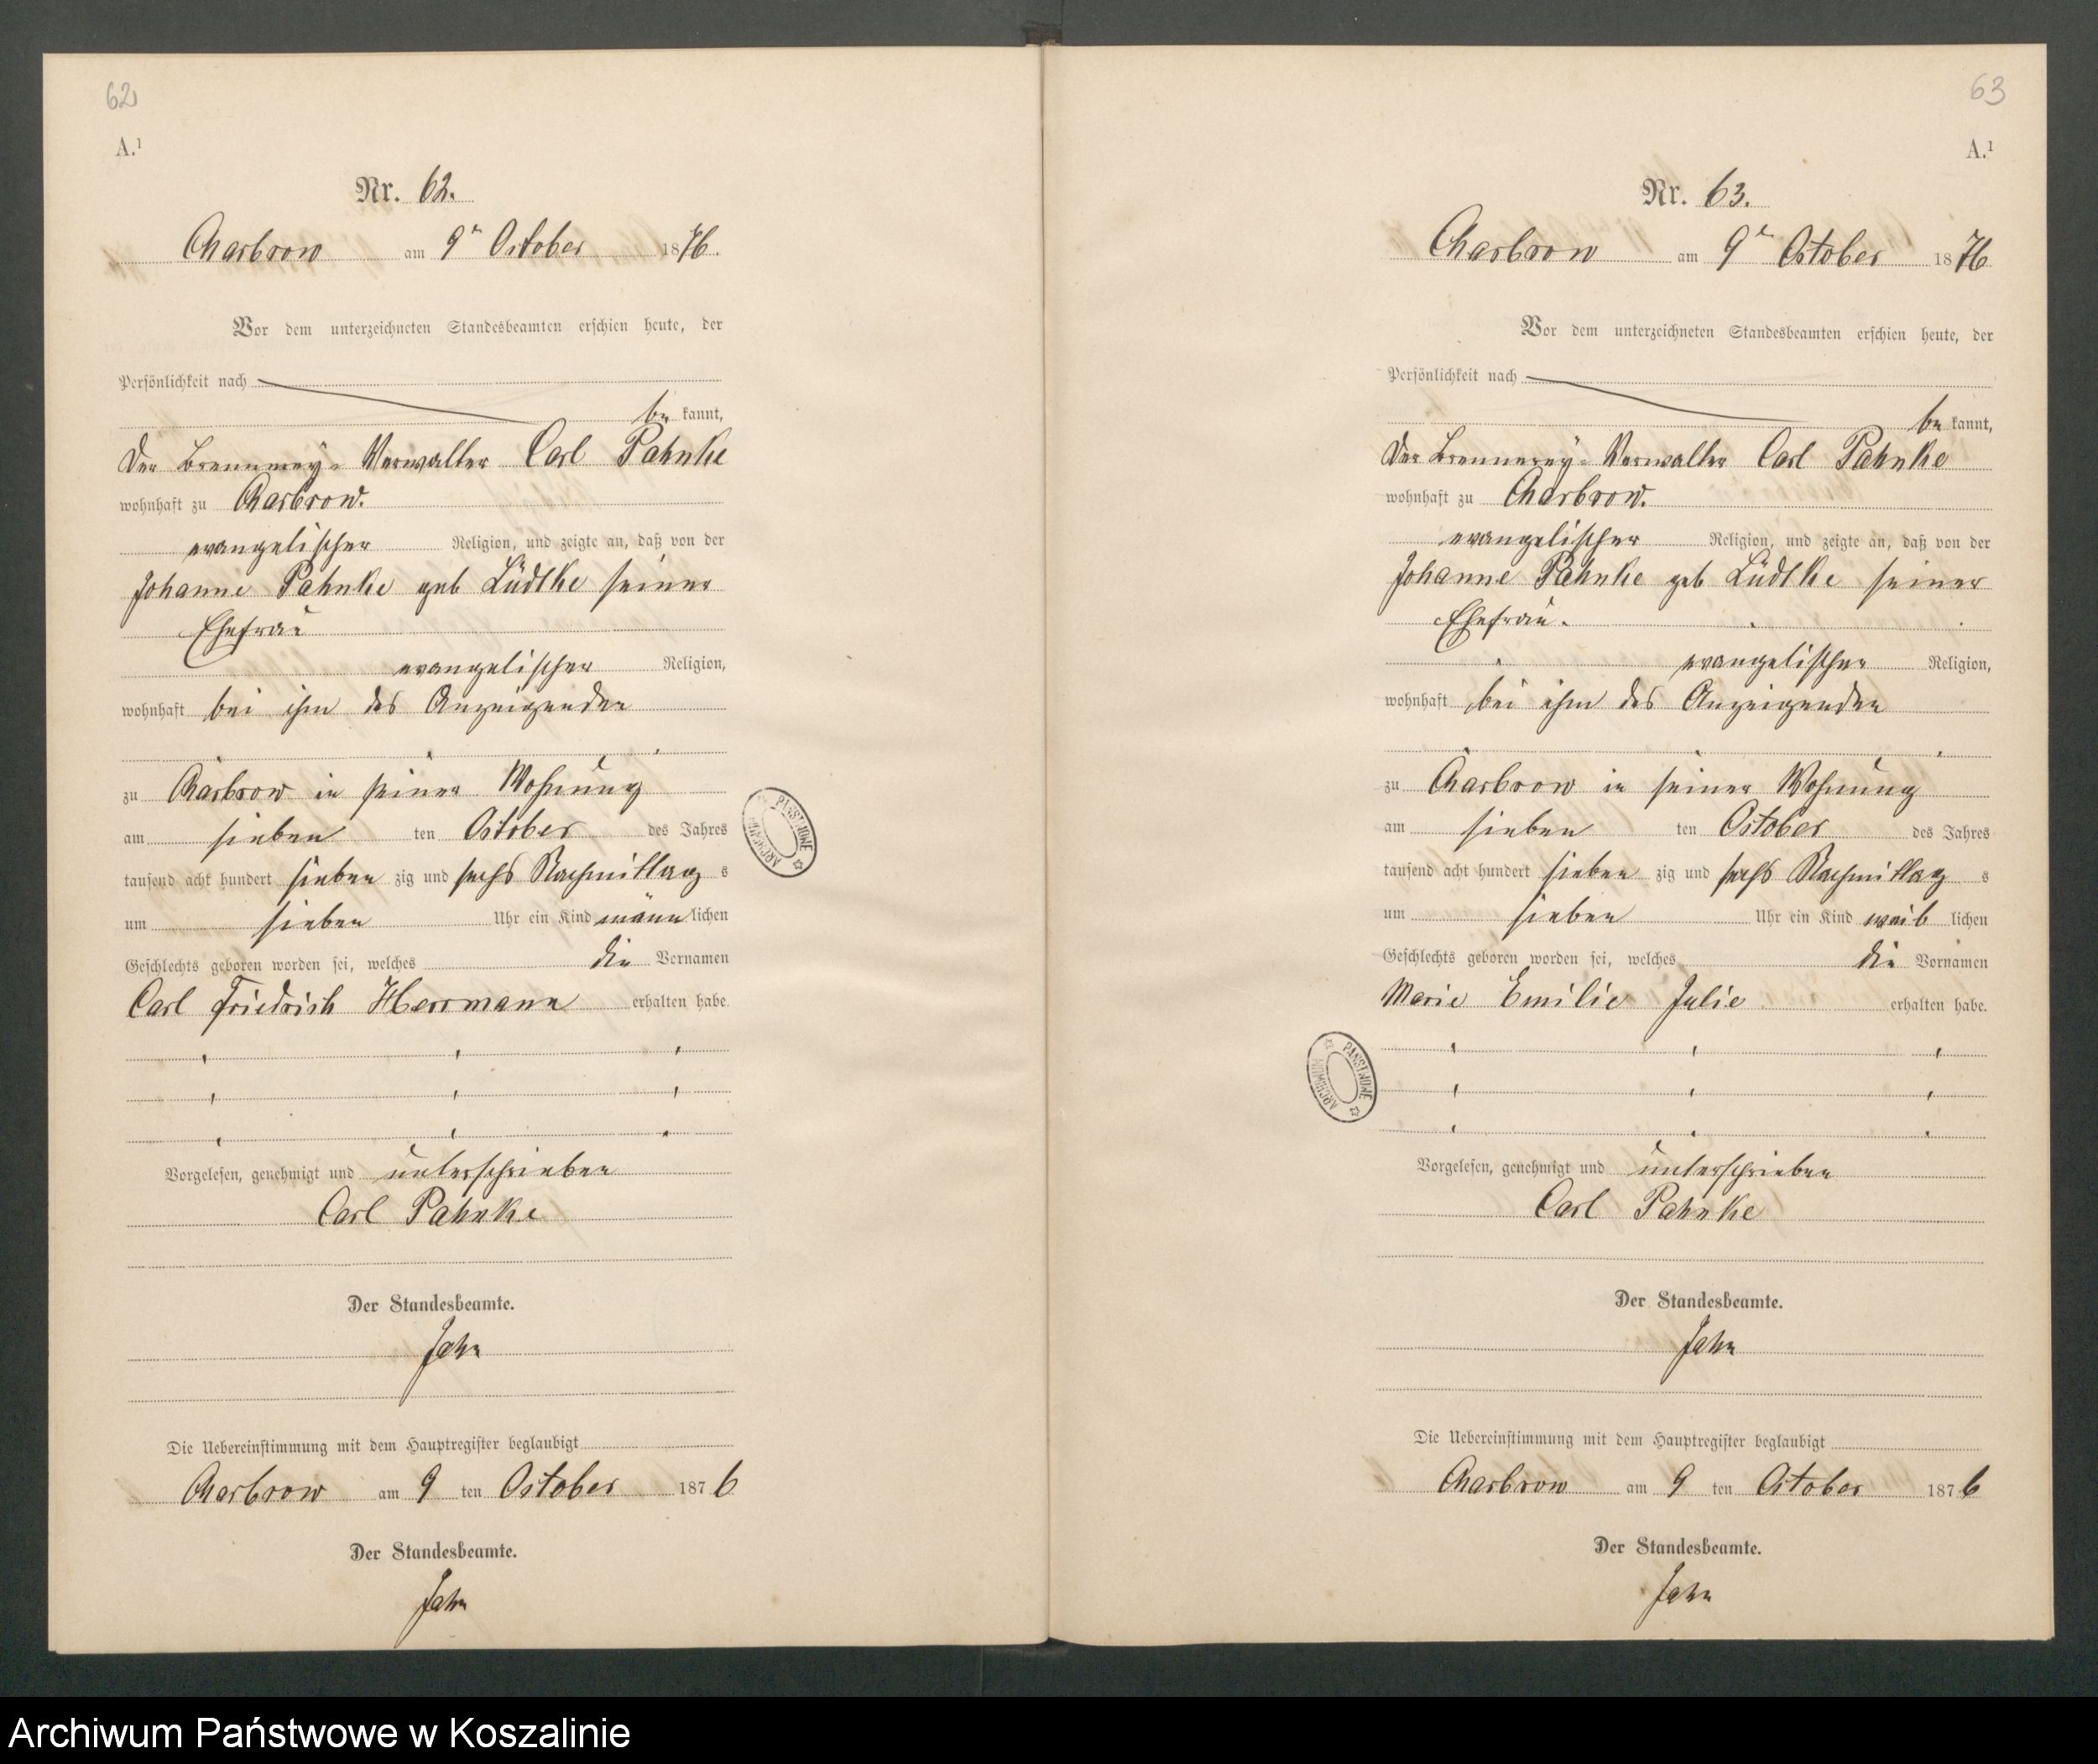 62
A.¹
Nr. 62.
Charbrow am 9ⁿ October 1876.
Vor dem unterzeichneten Standesbeamten erschien heute, der
Persönlichkeit nach
be kannt,
der Brennerey-Verwalter Carl Pahnke
wohnhaft zu Charbrow.
evangelischer Religion, und zeigte an, daß von der
Johanne Pahnke geb Lüdtke seiner
Ehefrau
evangelischer Religion,
wohnhaft bei ihm des Anzeigenden
zu Charbrow in seiner Wohnung
am sieben ten October des Jahres
tausend acht hundert sieben zig und sechs Nachmittag s
um sieben Uhr ein Kind männ lichen
Geschlechts geboren worden sei, welches die Vornamen
Carl Friedrich Herrmann erhalten habe.
Vorgelesen, genehmigt und unterschrieben
Carl Pahnke
Der Standesbeamte.
Jahn
Die Uebereinstimmung mit dem Hauptregister beglaubigt
Charbrow am 9 ten October 1876
Der Standesbeamte.
Jahn
ARCHIWUM PAŃSTWOWE
63
A.¹
Nr. 63.
Charbrow am 9ⁿ October 1876
Vor dem unterzeichneten Standesbeamten erschien heute, der
Persönlichkeit nach
be kannt,
der Brennerey-Verwalter Carl Pahnke
wohnhaft zu Charbrow.
evangelischer Religion, und zeigte an, daß von der
Johanne Pahnke geb Lüdtke seiner
Ehefrau.
evangelischer Religion,
wohnhaft bei ihm des Anzeigenden
zu Charbrow in seiner Wohnung
am sieben ten October des Jahres
tausend acht hundert sieben zig und sechs Nachmittag s
um sieben Uhr ein Kind weib lichen
Geschlechts geboren worden sei, welches die Vornamen
Marie Emilie Julie erhalten habe.
ARCHIWUM PAŃSTWOWE
Vorgelesen, genehmigt und unterschrieben
Carl Pahnke
Der Standesbeamte.
Jahn
Die Uebereinstimmung mit dem Hauptregister beglaubigt
Charbrow am 9 ten October 1876
Der Standesbeamte.
Jahn
Archiwum Państwowe w Koszalinie